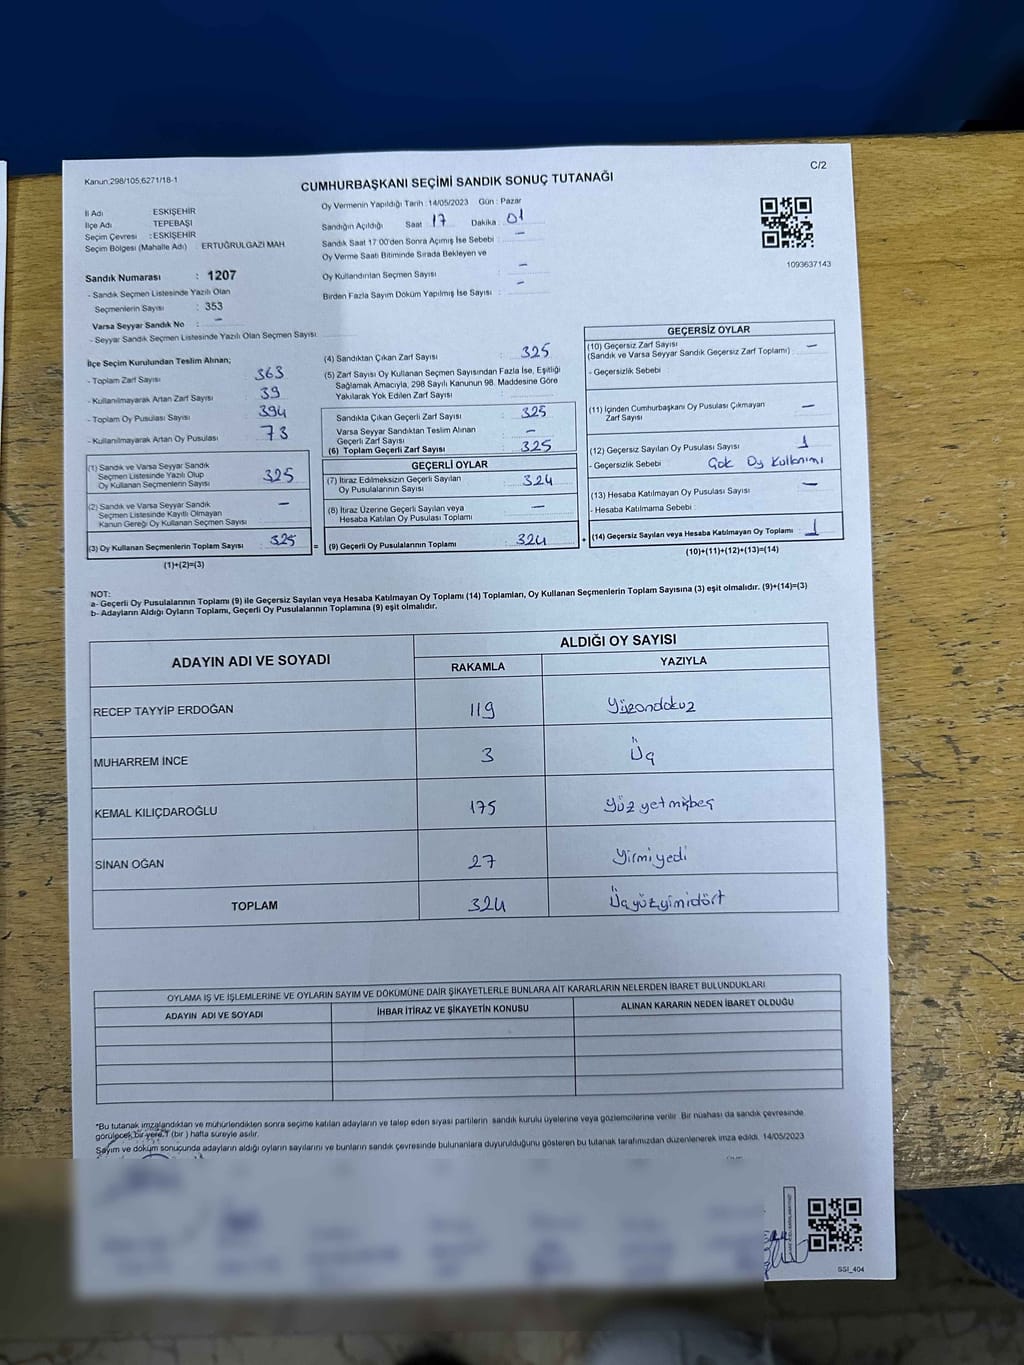 Kanun;298/105,6271/18-1
C/2
CUMHURBAŞKANI SEÇİMİ SANDIK SONUÇ TUTANAĞI
İl Adı ESKİŞEHİR
İlçe Adı TEPEBAŞI
Seçim Çevresi : ESKİŞEHİR
Seçim Bölgesi (Mahalle Adı) : ERTUĞRULGAZİ MAH
Sandık Numarası : 1207
- Sandık Seçmen Listesinde Yazılı Olan
Seçmenlerin Sayısı : 353
Varsa Seyyar Sandık No : -
- Seyyar Sandık Seçmen Listesinde Yazılı Olan Seçmen Sayısı
Oy Vermenin Yapıldığı Tarih : 14/05/2023 Gün : Pazar
Sandığın Açıldığı Saat 17 Dakika : 01
Sandık Saat 17:00'den Sonra Açımış İse Sebebi : -
Oy Verme Saati Bitiminde Sırada Bekleyen ve
Oy Kullandırılan Seçmen Sayısı -
Birden Fazla Sayım Döküm Yapılmış İse Sayısı : -
1093637143
İlçe Seçim Kurulundan Teslim Alınan;
- Toplam Zarf Sayısı 363
- Kullanılmayarak Artan Zarf Sayısı 39
- Toplam Oy Pusulası Sayısı 394
- Kullanılmayarak Artan Oy Pusulası 73
(1) Sandık ve Varsa Seyyar Sandık
Seçmen Listesinde Yazılı Olup
Oy Kullanan Seçmenlerin Sayısı 325
(2) Sandık ve Varsa Seyyar Sandık
Seçmen Listesinde Kayıtlı Olmayan
Kanun Gereği Oy Kullanan Seçmen Sayısı -
(3) Oy Kullanan Seçmenlerin Toplam Sayısı 325 =
(1)+(2)=(3)
(4) Sandıktan Çıkan Zarf Sayısı : 325
(5) Zarf Sayısı Oy Kullanan Seçmen Sayısından Fazla İse, Eşitliği
Sağlamak Amacıyla, 298 Sayılı Kanunun 98. Maddesine Göre
Yakılarak Yok Edilen Zarf Sayısı
Sandıkta Çıkan Geçerli Zarf Sayısı : 325
Varsa Seyyar Sandıktan Teslim Alınan
Geçerli Zarf Sayısı -
(6) Toplam Geçerli Zarf Sayısı : 325
GEÇERLİ OYLAR
(7) İtiraz Edilmeksizin Geçerli Sayılan
Oy Pusulalarının Sayısı : 324
(8) İtiraz Üzerine Geçerli Sayılan veya
Hesaba Katılan Oy Pusulası Toplamı -
(9) Geçerli Oy Pusulalarının Toplamı 324 +
GEÇERSİZ OYLAR
(10) Geçersiz Zarf Sayısı
(Sandık ve Varsa Seyyar Sandık Geçersiz Zarf Toplamı) -
- Geçersizlik Sebebi
(11) İçinden Cumhurbaşkanı Oy Pusulası Çıkmayan
Zarf Sayısı -
(12) Geçersiz Sayılan Oy Pusulası Sayısı 1
- Geçersizlik Sebebi Çok Oy Kullanımı
(13) Hesaba Katılmayan Oy Pusulası Sayısı -
- Hesaba Katılmama Sebebi :
(14) Geçersiz Sayılan veya Hesaba Katılmayan Oy Toplamı 1
(10)+(11)+(12)+(13)=(14)
NOT:
a- Geçerli Oy Pusulalarının Toplamı (9) ile Geçersiz Sayılan veya Hesaba Katılmayan Oy Toplamı (14) Toplamları, Oy Kullanan Seçmenlerin Toplam Sayısına (3) eşit olmalıdır. (9)+(14)=(3)
b- Adayların Aldığı Oyların Toplamı, Geçerli Oy Pusulalarının Toplamına (9) eşit olmalıdır.
ADAYIN ADI VE SOYADI ALDIĞI OY SAYISI
RAKAMLA YAZIYLA
RECEP TAYYİP ERDOĞAN 119 Yüzondokuz
MUHARREM İNCE 3 Üç
KEMAL KILIÇDAROĞLU 175 Yüz yetmişbeş
SİNAN OĞAN 27 Yirmiyedi
TOPLAM 324 Üçyüzyimidört
OYLAMA İŞ VE İŞLEMLERİNE VE OYLARIN SAYIM VE DÖKÜMÜNE DAİR ŞİKAYETLERLE BUNLARA AİT KARARLARIN NELERDEN İBARET BULUNDUKLARI
ADAYIN ADI VE SOYADI İHBAR İTİRAZ VE ŞİKAYETİN KONUSU ALINAN KARARIN NEDEN İBARET OLDUĞU
*Bu tutanak imzalandıktan ve mühürlendikten sonra seçime katılan adayların ve talep eden siyasi partilerin sandık kurulu üyelerine veya gözlemcilerine verilir. Bir nüshası da sandık çevresinde
görülecek bir yere 1 (bir ) hafta süreyle asılır.
Sayım ve döküm sonucunda adayların aldığı oyların sayılarını ve bunların sandık çevresinde bulunanlara duyurulduğunu gösteren bu tutanak tarafımızdan düzenlenerek imza edildi. 14/05/2023
SSI_404